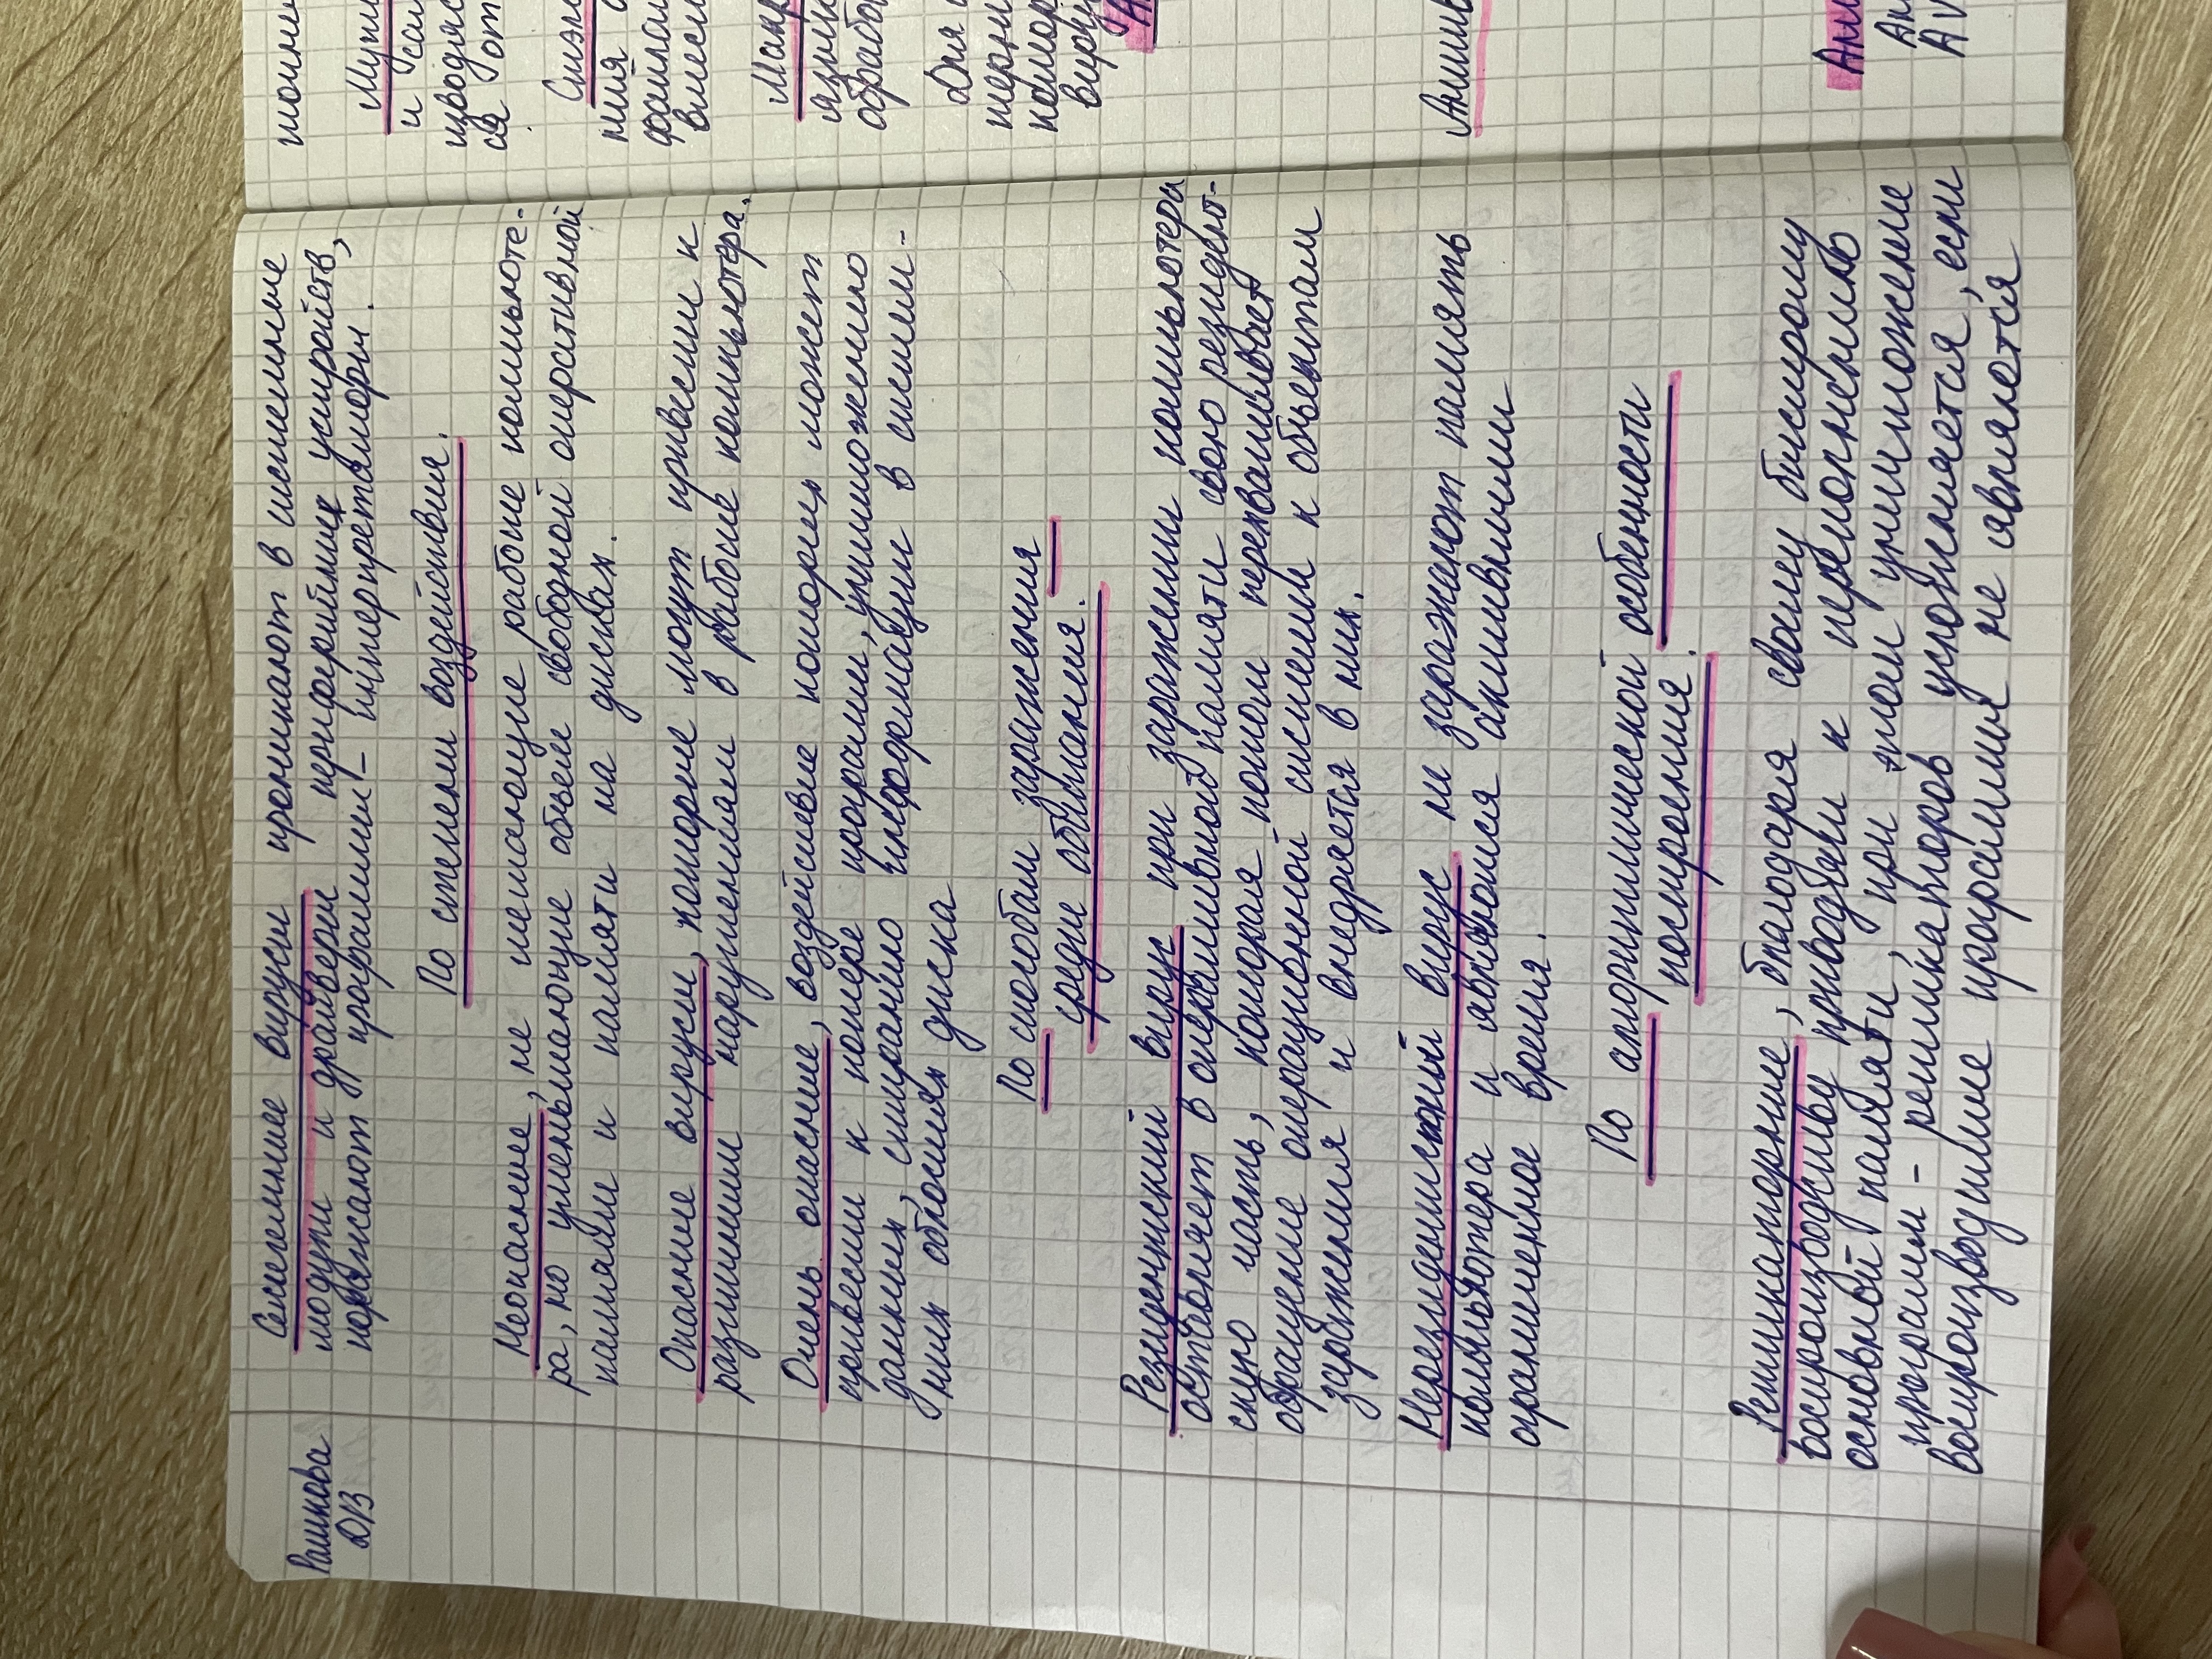 Рашкова
ДВ
Системные вирусы проникают в системные
модули и драйверы периферийных устройств,
поражают программы - интерпретаторы.
По степени воздействия.
Неопасные, не мешающие работе компьюте-
ра, но уменьшающие объем свободной оперативной
памяти и памяти на дисках.
Опасные вирусы, которые могут привести к
различным нарушениям в работе компьютера.
Очень опасные, воздействие которых может
привести к потере программ, уничтожению
данных, стиранию информации в систем-
ных областях диска
По способам заражения
среды обитания.
Резидентский вирус при заражении компьютера
оставляет в оперативной памяти свою резидент-
ную часть, которая потом перехватывает
обращение операционной системы к объектам
заражения и внедряется в них.
Нерезидентский вирус не заражают память
компьютера и являются активными
ограниченное время.
По алгоритмической особенности
построения.
Репликаторные, благодаря своему быстрому
воспроизводству приводят к переполнению
основной памяти, при этом уничтожение
программ - репликаторов усложняется, если
воспроизводимые программы не являются
точны
Мути
и
ся
ния
Макр
обрабо
Для
виру